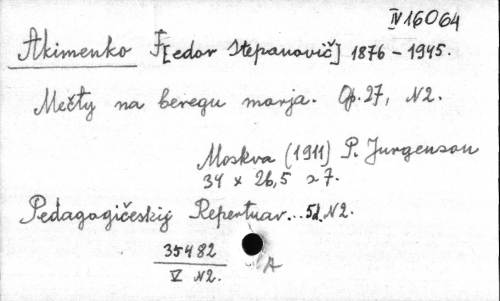 IV 16064
Akimenko F[edor Stepanovič] 1876 - 1945.
Mečty na beregu marja. Op. 27, N2.
Moskva (1911) P. Jurgenson
34 x 26,5 s 7.
Pedagagičeskij Repertuar... 5d. N2.
35482
V N2.
A